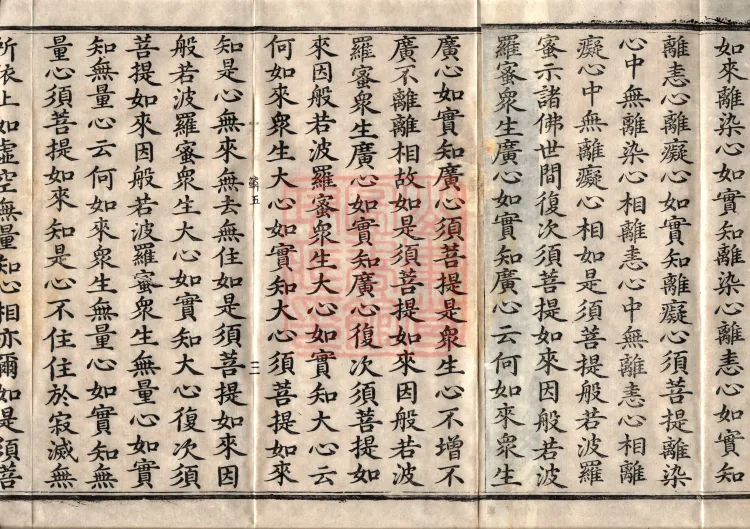 如來離染心如實知離染心離恚心如實知
離恚心離癡心如實知離癡心須菩提離染
心中無離染心相離恚心中無離恚心相離
癡心中無離癡心相如是須菩提般若波羅
蜜示諸佛世間復次須菩提如來因般若波
羅蜜衆生廣心如實知廣心云何如來衆生
廣心如實知廣心須菩提是衆生心不增不
廣不離離相故如是須菩提如來因般若波
羅蜜衆生廣心如實知廣心復次須菩提如
來因般若波羅蜜衆生大心如實知大心云
何如來衆生大心如實知大心須菩提如來
五 二
知是心無來無去無住如是須菩提如來因
般若波羅蜜衆生大心如實知大心復次須
菩提如來因般若波羅蜜衆生無量心如實
知無量心云何如來衆生無量心如實知無
量心須菩提如來知是心不住住於寂滅無
所依止如虛空無量知心相亦爾如是須菩